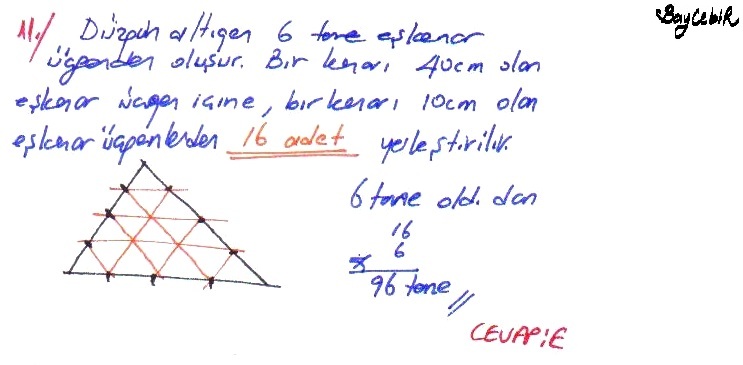 BayCebiR
11-/ Düzgün altıgen 6 tane eşkenar
üçgenden oluşur. Bir kenarı 40cm olan
eşkenar üçgen içine, bir kenarı 10cm olan
eşkenar üçgenlerden 16 adet yerleştirilir.
6 tane old. dan
16
6
x
96 tane //
CEVAP: E